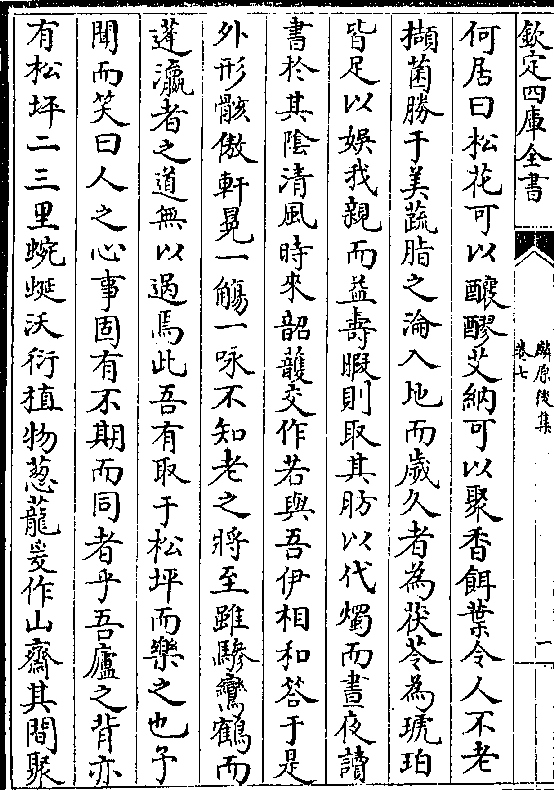 欽定四庫全書
麟原後集
卷七
一
何居曰松花可以釀醪艾納可以聚香餌葉令人不老
擷菌勝于美蔬脂之淪入地而歲久者為茯苓為琥珀
皆足以娛我親而益壽暇則取其肪以代燭而晝夜讀
書於其陰清風時來韶頀交作若與吾伊相和答于是
外形骸傲軒冕一觴一咏不知老之將至雖驂鸞鶴而
蓬瀛者之道無以過焉此吾有取于松坪而樂之也予
聞而笑曰人之心事固有不期而同者乎吾廬之背亦
有松坪二三里蜿蜒沃衍植物葱蘢爰作山齋其間聚